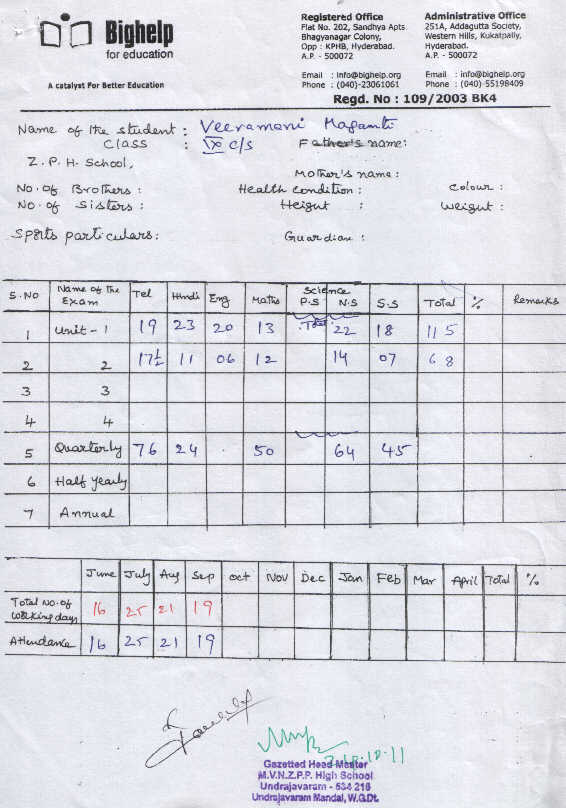 Bighelp
for education
A catalyst For Better Education
Registered Office
Flat No. 202, Sandhya Apts.
Bhagyanagar Colony,
Opp : KPHB, Hyderabad.
A.P. - 500072
Email : info@bighelp.org
Phone : (040)-23061061
Administrative Office
251A, Addagutta Society,
Western Hills, Kukatpally,
Hyderabad.
A.P. - 500072
Email : info@bighelp.org
Phone : (040)-55198409
Regd. No : 109/2003 BK4
Name of the student : Veeramani Maganti
Class : IX c/s Father's name:
Z. P. H. School,
Mother's name:
No. of Brothers : Health condition : colour :
No. of Sisters : Height : weight :
Sports particulars: Guardian :
S.No Name of the Exam Tel Hindi Eng Maths Science P.S N.S S.S Total % Remarks
1 Unit - 1 19 23 20 13 Total 22 18 115
2 2 17½ 11 06 12 14 07 68
3 3
4 4
5 Quarterly 76 24 . 50 64 45
6 Half yearly
7 Annual
June July Aug Sep Oct Nov Dec Jan Feb Mar April Total %
Total No. of working days 16 25 21 19
Attendance 16 25 21 19
Gazetted Head Master
M.V.N.Z.P.P. High School
Undrajavaram - 534 216
Undrajavaram Mandal, W.G.Dt.